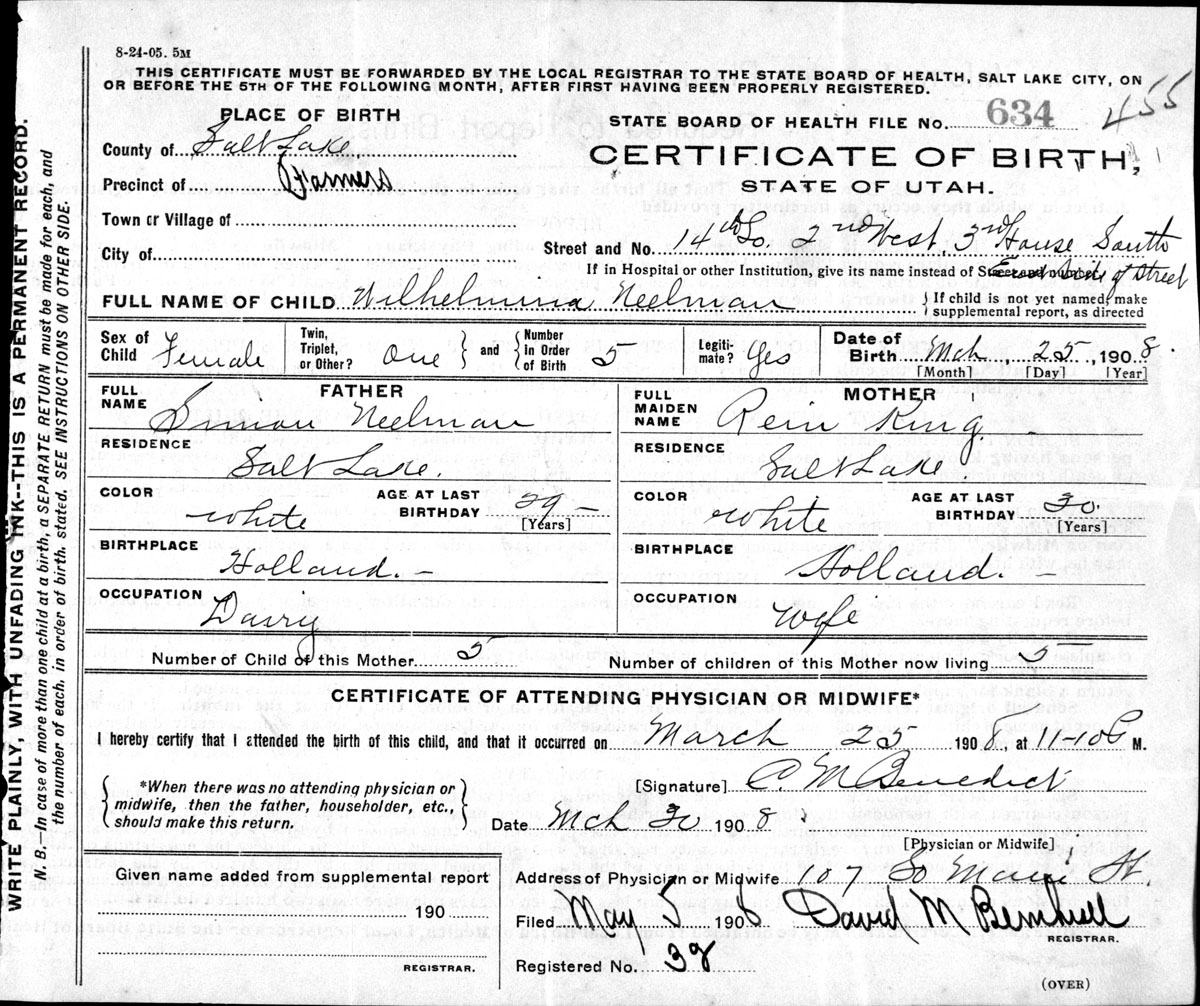 8-24-05. 5M
THIS CERTIFICATE MUST BE FORWARDED BY THE LOCAL REGISTRAR TO THE STATE BOARD OF HEALTH, SALT LAKE CITY, ON
OR BEFORE THE 5TH OF THE FOLLOWING MONTH, AFTER FIRST HAVING BEEN PROPERLY REGISTERED.
455
PLACE OF BIRTH
STATE BOARD OF HEALTH FILE No. 634
County of Salt Lake
CERTIFICATE OF BIRTH,
Precinct of Farmers
STATE OF UTAH.
Town or Village of
Street and No. 14th So. 2nd West, 3rd House South
City of
If in Hospital or other Institution, give its name instead of Street and number.
East Side of Street
FULL NAME OF CHILD Wilhelmina Neelman
If child is not yet named, make
supplemental report, as directed
Sex of Child Female
Twin, Triplet, or Other? One and Number in Order of Birth 5
Legiti-mate? Yes
Date of Birth Mch 25 1908.
[Month] [Day] [Year]
FATHER
FULL NAME Simon Neelman
MOTHER
FULL MAIDEN NAME Rein King
RESIDENCE Salt Lake.
RESIDENCE Salt Lake
COLOR White AGE AT LAST BIRTHDAY 29 – [Years]
COLOR White AGE AT LAST BIRTHDAY 30 [Years]
BIRTHPLACE Holland. –
BIRTHPLACE Holland. –
OCCUPATION Dairy
OCCUPATION Wife
Number of Child of this Mother 5
Number of children of this Mother now living 5
CERTIFICATE OF ATTENDING PHYSICIAN OR MIDWIFE*
I hereby certify that I attended the birth of this child, and that it occurred on March 25 1908, at 11-10 P M.
*When there was no attending physician or
midwife, then the father, householder, etc.,
should make this return.
[Signature] C. M Benedict
Date Mch 30 1908
[Physician or Midwife]
Given name added from supplemental report
190
REGISTRAR.
Address of Physician or Midwife 107 So Main St.
Filed May 5 1908 David M
REGISTRAR.
Registered No. 38
(OVER)
WRITE PLAINLY, WITH UNFADING INK--THIS IS A PERMANENT RECORD.
N. B.—In case of more than one child at a birth, a SEPARATE RETURN must be made for each, and
the number of each, in order of birth, stated. SEE INSTRUCTIONS ON OTHER SIDE.